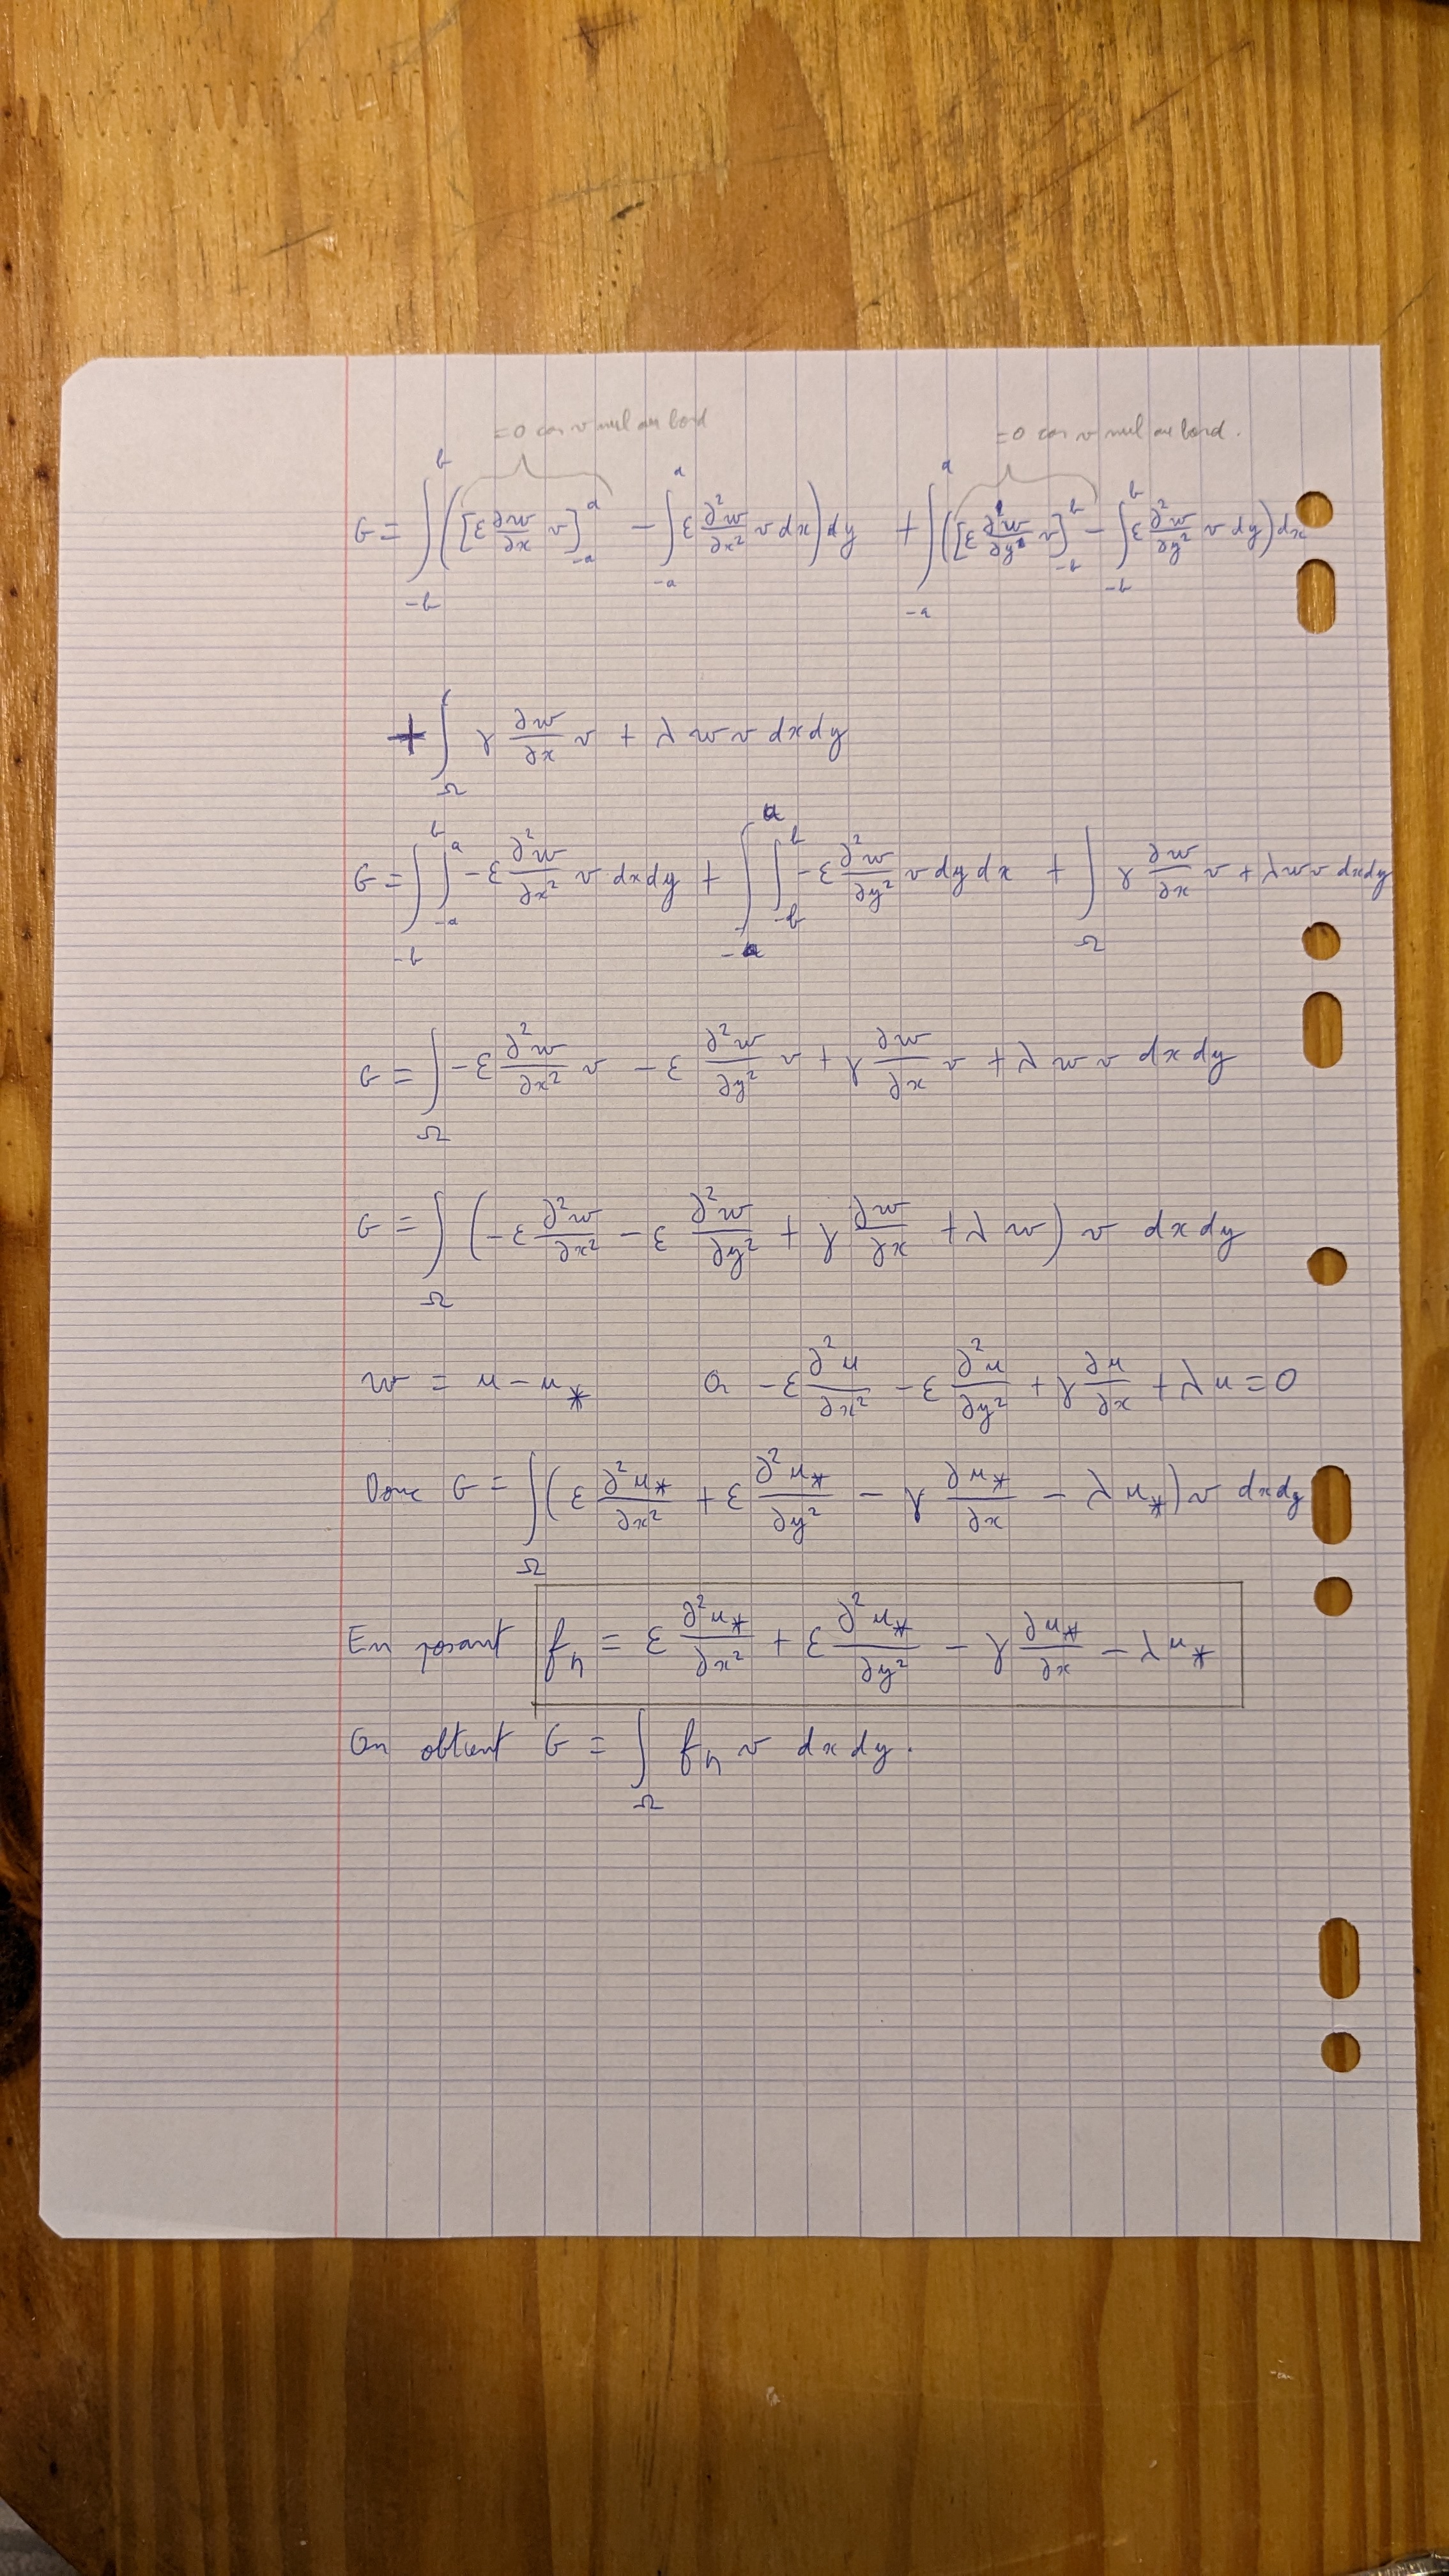 =0 car v nul au bord =0 car v nul au bord.
G = ∫_{-b}^{b} ([ε ∂w/∂x v]_{-a}^{a} - ∫_{-a}^{a} ε ∂²w/∂x² v dx) dy + ∫_{-a}^{a} ([ε ∂w/∂y v]_{-b}^{b} - ∫_{-b}^{b} ε ∂²w/∂y² v dy) dx
+ ∫_Ω γ ∂w/∂x v + λ w v dx dy
G = ∫_{-b}^{b} ∫_{-a}^{a} -ε ∂²w/∂x² v dx dy + ∫_{-a}^{a} ∫_{-b}^{b} -ε ∂²w/∂y² v dy dx + ∫_Ω γ ∂w/∂x v + λ w v dx dy
G = ∫_Ω -ε ∂²w/∂x² v - ε ∂²w/∂y² v + γ ∂w/∂x v + λ w v dx dy
G = ∫_Ω (-ε ∂²w/∂x² - ε ∂²w/∂y² + γ ∂w/∂x + λ w) v dx dy
w = u - u* Or -ε ∂²u/∂x² - ε ∂²u/∂y² + γ ∂u/∂x + λ u = 0
Donc G = ∫_Ω (ε ∂²u*/∂x² + ε ∂²u*/∂y² - γ ∂u*/∂x - λ u*) v dx dy
En posant f_η = ε ∂²u*/∂x² + ε ∂²u*/∂y² - γ ∂u*/∂x - λ u*
On obtient G = ∫_Ω f_η v dx dy.